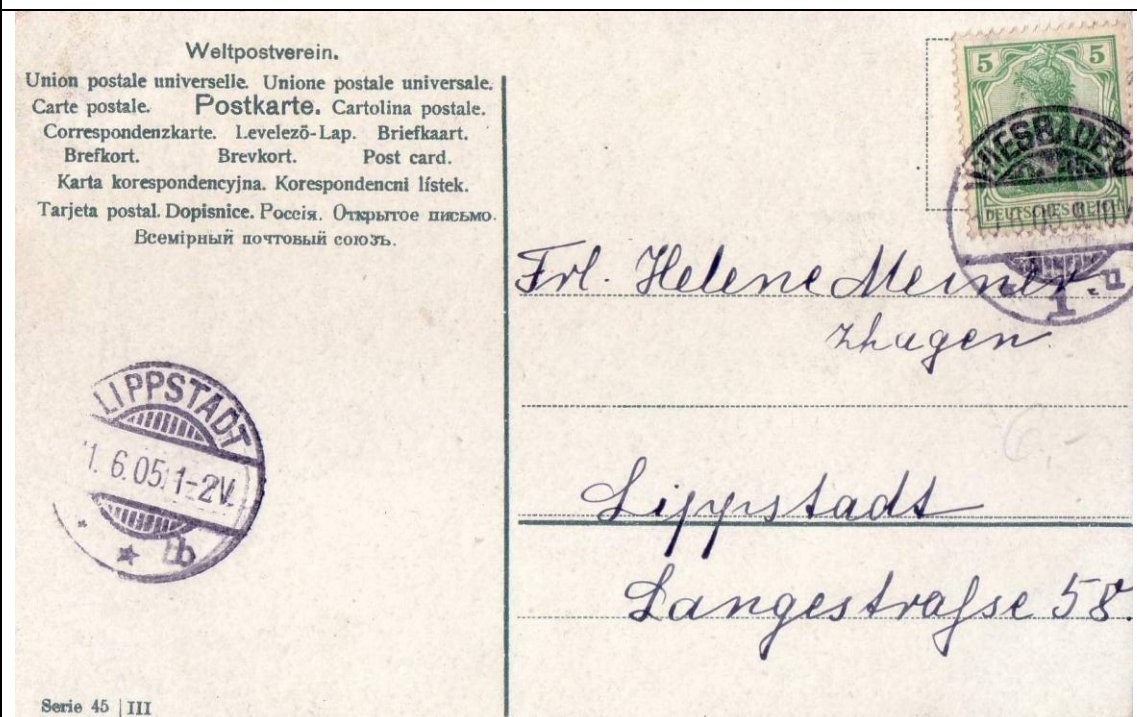 Weltpostverein.
Union postale universelle. Unione postale universale.
Carte postale. Postkarte. Cartolina postale.
Correspondenzkarte. Levelező-Lap. Briefkaart.
Brefkort. Brevkort. Post card.
Karta korespondencyjna. Korespondencni lístek.
Tarjeta postal. Dopisnice. Россія. Открытое письмо.
Всемірный почтовый союзъ.
5 5
WIESBADEN
DEUTSCHES REICH
1
Frl. Helene Meiner.
zhagen
Lippstadt
Langestraſse 58.
LIPPSTADT
1. 6. 05. 1-2V.
* bb
6,-
Serie 45 | III